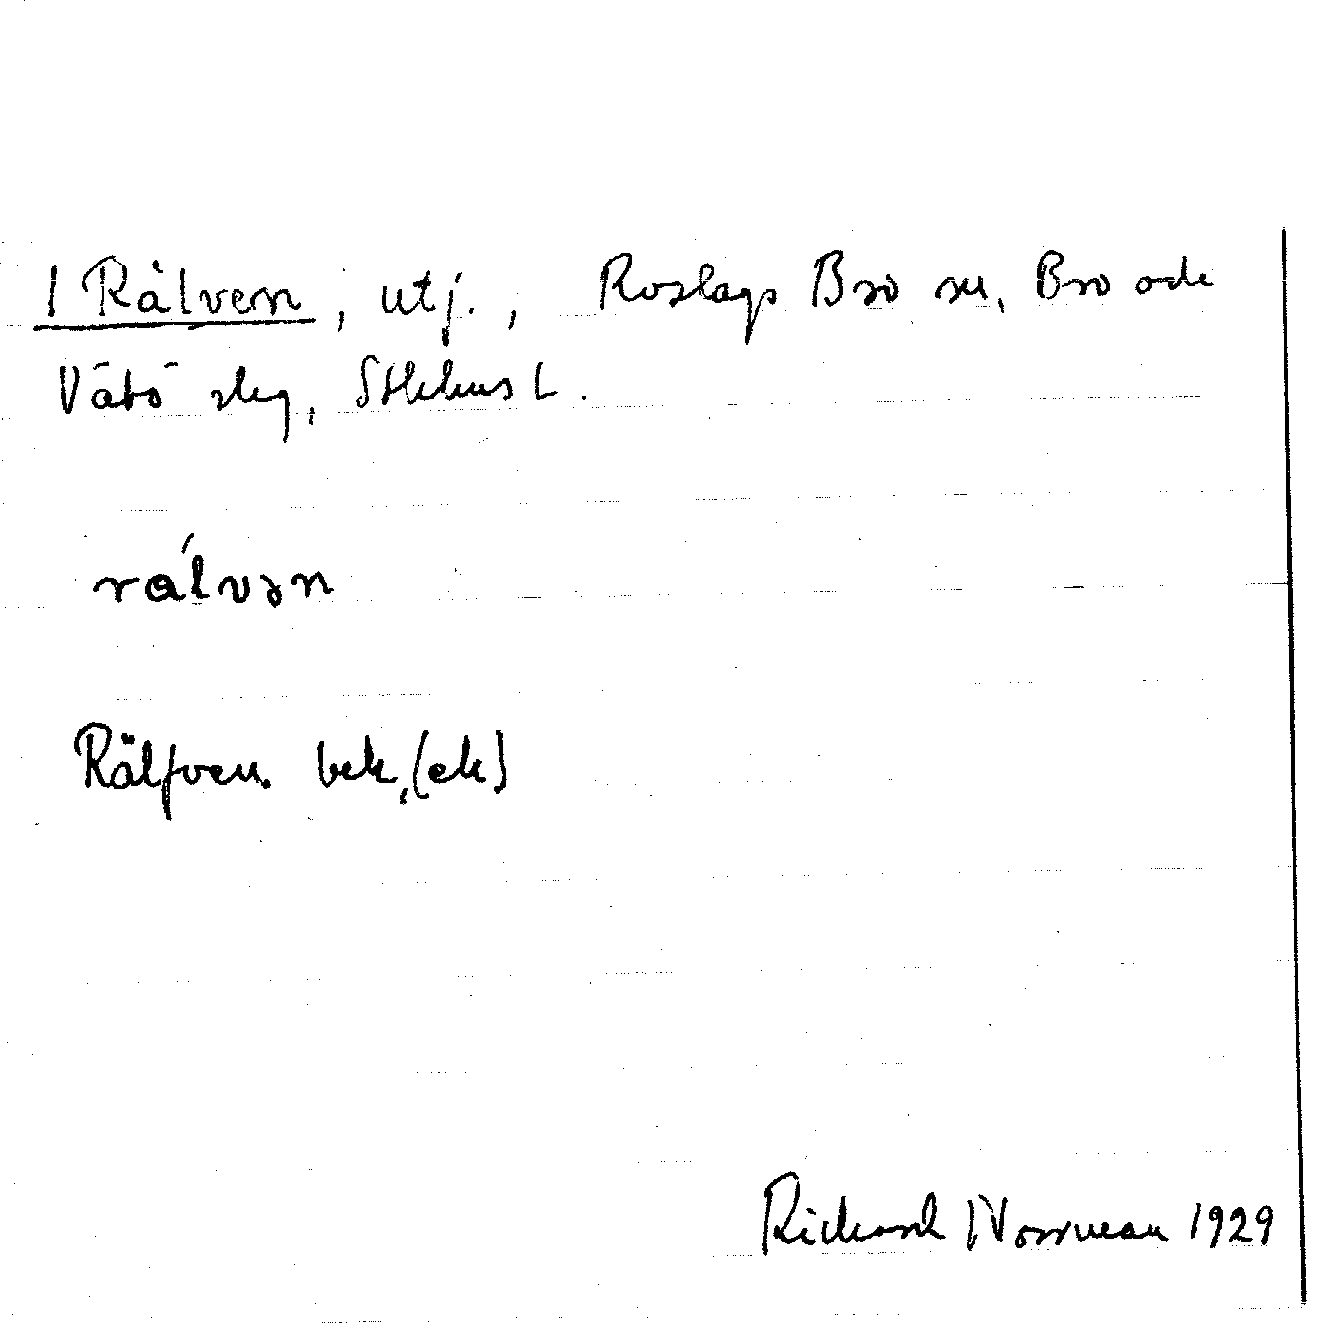 1 Rälven, utj., Roslags Bro sn, Bro och
Vätö skg, Sthlms L.
rálvən
Rälfven. bek, (ek)
Richard Norrman 1929